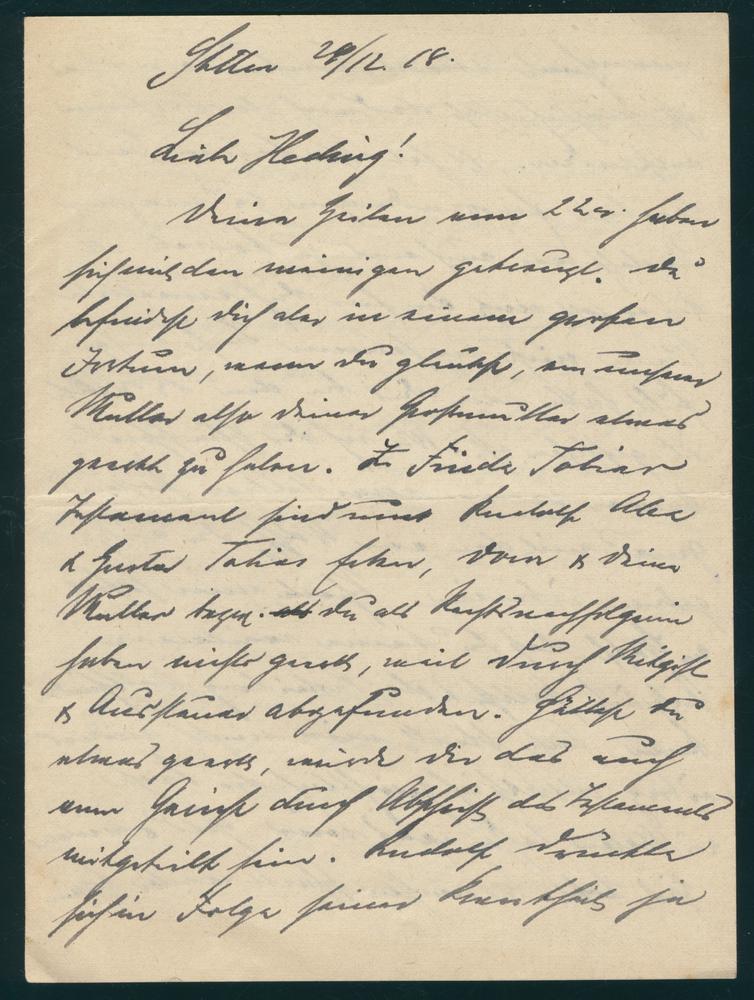 Stettin 28/12. 18.
Liebe Hedwig!
Deine Zeilen vom 22er. haben
sich mit den meinigen gekreuzt. Du
befindest dich aber in einem großen
Irrtum, wenn du glaubst, von unserer
Mutter also deiner Großmutter etwas
geerbt zu haben. In Frieda Tobias
Testament sind nur Rudolf Alex
& Gustav Tobias Erben, Dora & deine
Mutter bezw. du als Rechtsnachfolgerin
haben nichts geerbt, weil durch Mitgift
& Aussteuer abgefunden. Hättest du
etwas geerbt, würde dir das auch
vom Gericht durch Abschrift des Testaments
mitgeteilt sein. Rudolf drückte
sich in Folge seiner Krankheit ja